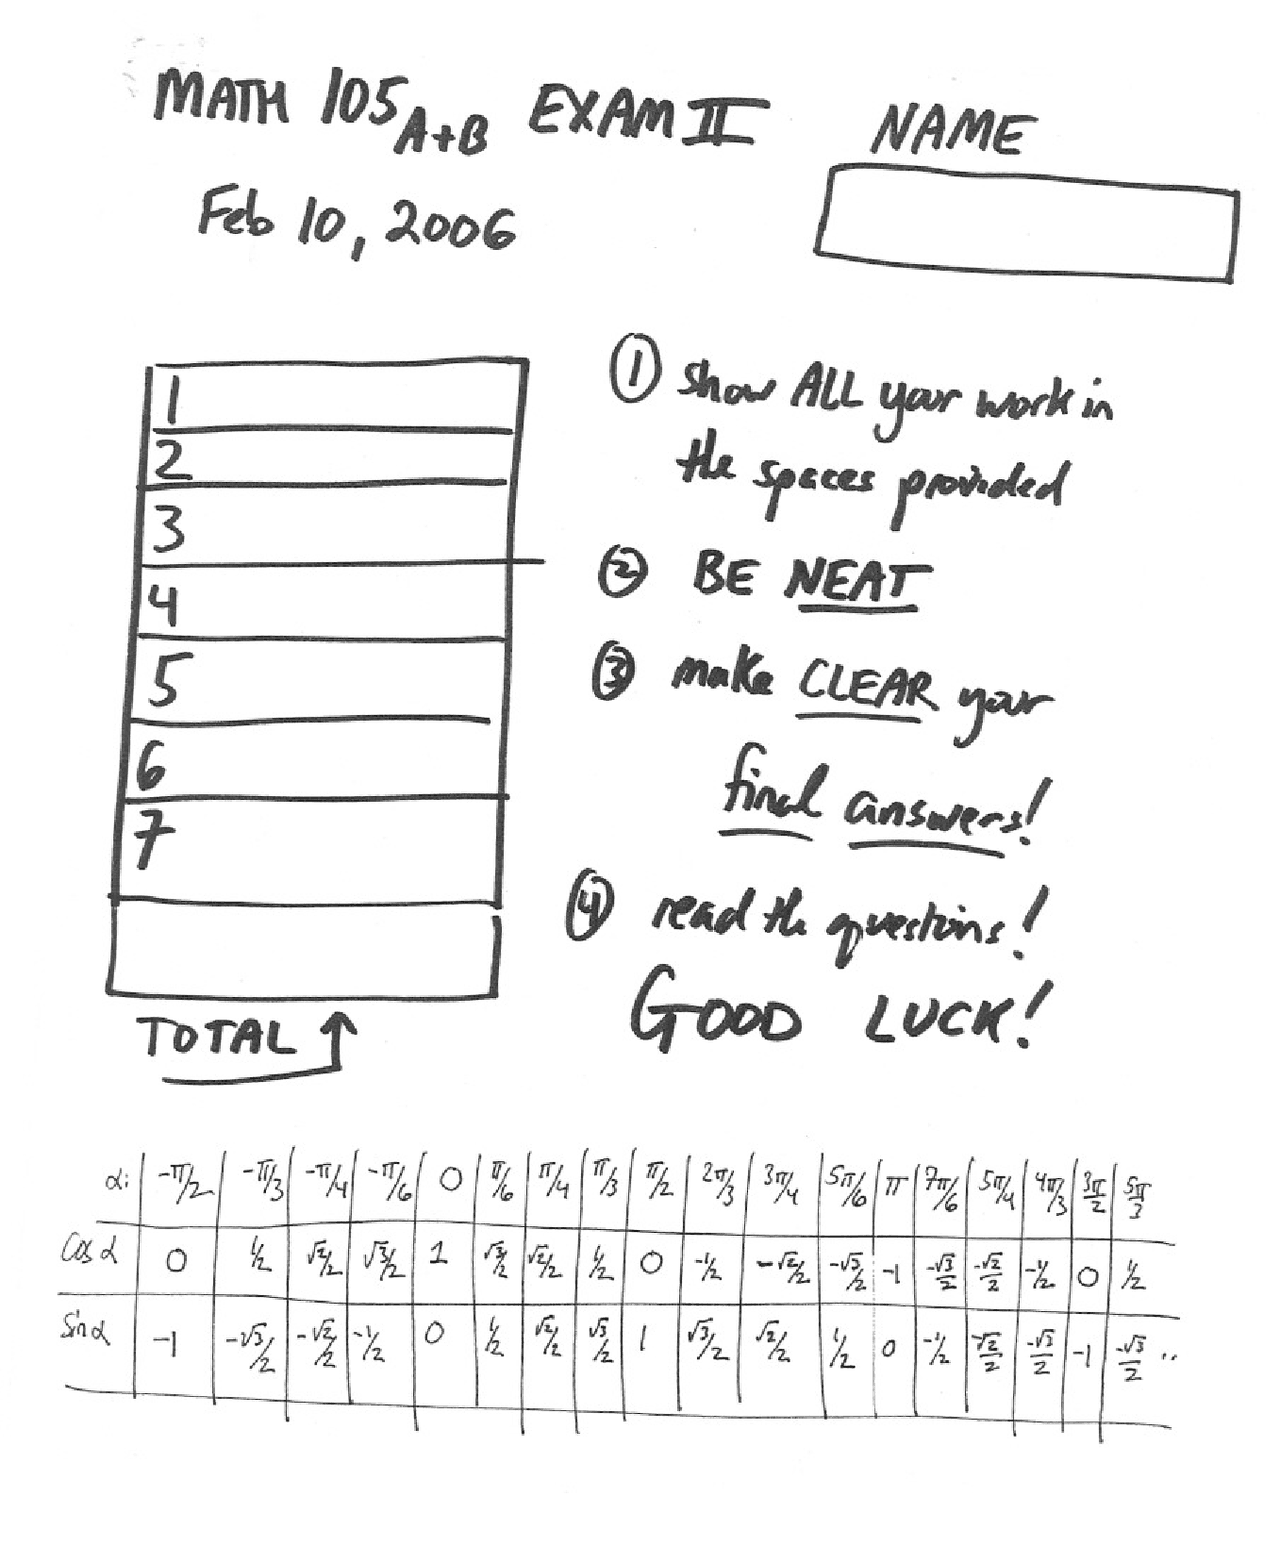 MATH 105 A+B EXAM II
NAME
Feb 10, 2006
1
2
3
4
5
6
7
TOTAL ↑
① show ALL your work in
the spaces provided
② BE NEAT
③ make CLEAR your
final answers!
④ read the questions!
GOOD LUCK!
α: -π/2 -π/3 -π/4 -π/6 0 π/6 π/4 π/3 π/2 2π/3 3π/4 5π/6 π 7π/6 5π/4 4π/3 3π/2 5π/3
Cos α 0 1/2 √2/2 √3/2 1 √3/2 √2/2 1/2 0 -1/2 -√2/2 -√3/2 -1 -√3/2 -√2/2 -1/2 0 1/2
Sin α -1 -√3/2 -√2/2 -1/2 0 1/2 √2/2 √3/2 1 √3/2 √2/2 1/2 0 -1/2 -√2/2 -√3/2 -1 -√3/2 ..